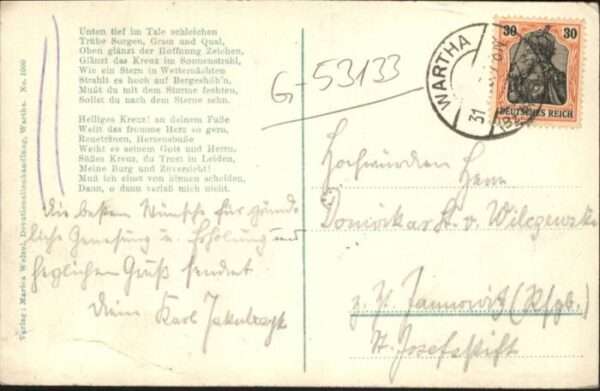 Unten tief im Tale schleichen
Trübe Sorgen, Gram und Qual,
Oben glänzt der Hoffnung Zeichen,
Glänzt das Kreuz im Sonnenstrahl,
Wie ein Stern in Wetternächten
Strahlt es hoch auf Bergeshöh'n.
Mußt du mit dem Sturme fechten,
Sollst du nach dem Sterne sehn.
Heiliges Kreuz! an deinem Fuße
Weilt das fromme Herz so gern,
Reuetränen, Herzensbuße
Weiht es seinem Gott und Herrn.
Süßes Kreuz, du Trost in Leiden,
Meine Burg und Zuversicht!
Muß ich einst von hinnen scheiden,
Dann, o dann verlaß mich nicht.
Verlag: Marica Welzel, Devotionalienhandlung, Wartha. No. 1000
G-53133
WARTHA
31
30 30
DEUTSCHES REICH
Die besten Wünsche für gründ-
liche Genesung u. Erholung und
herzlichen Gruß sendet
Dein Karl
Hochwürden Herrn
v. Wilczewski
z. Zt. Jannowitz (Rsgb.)
St. Josefsstift